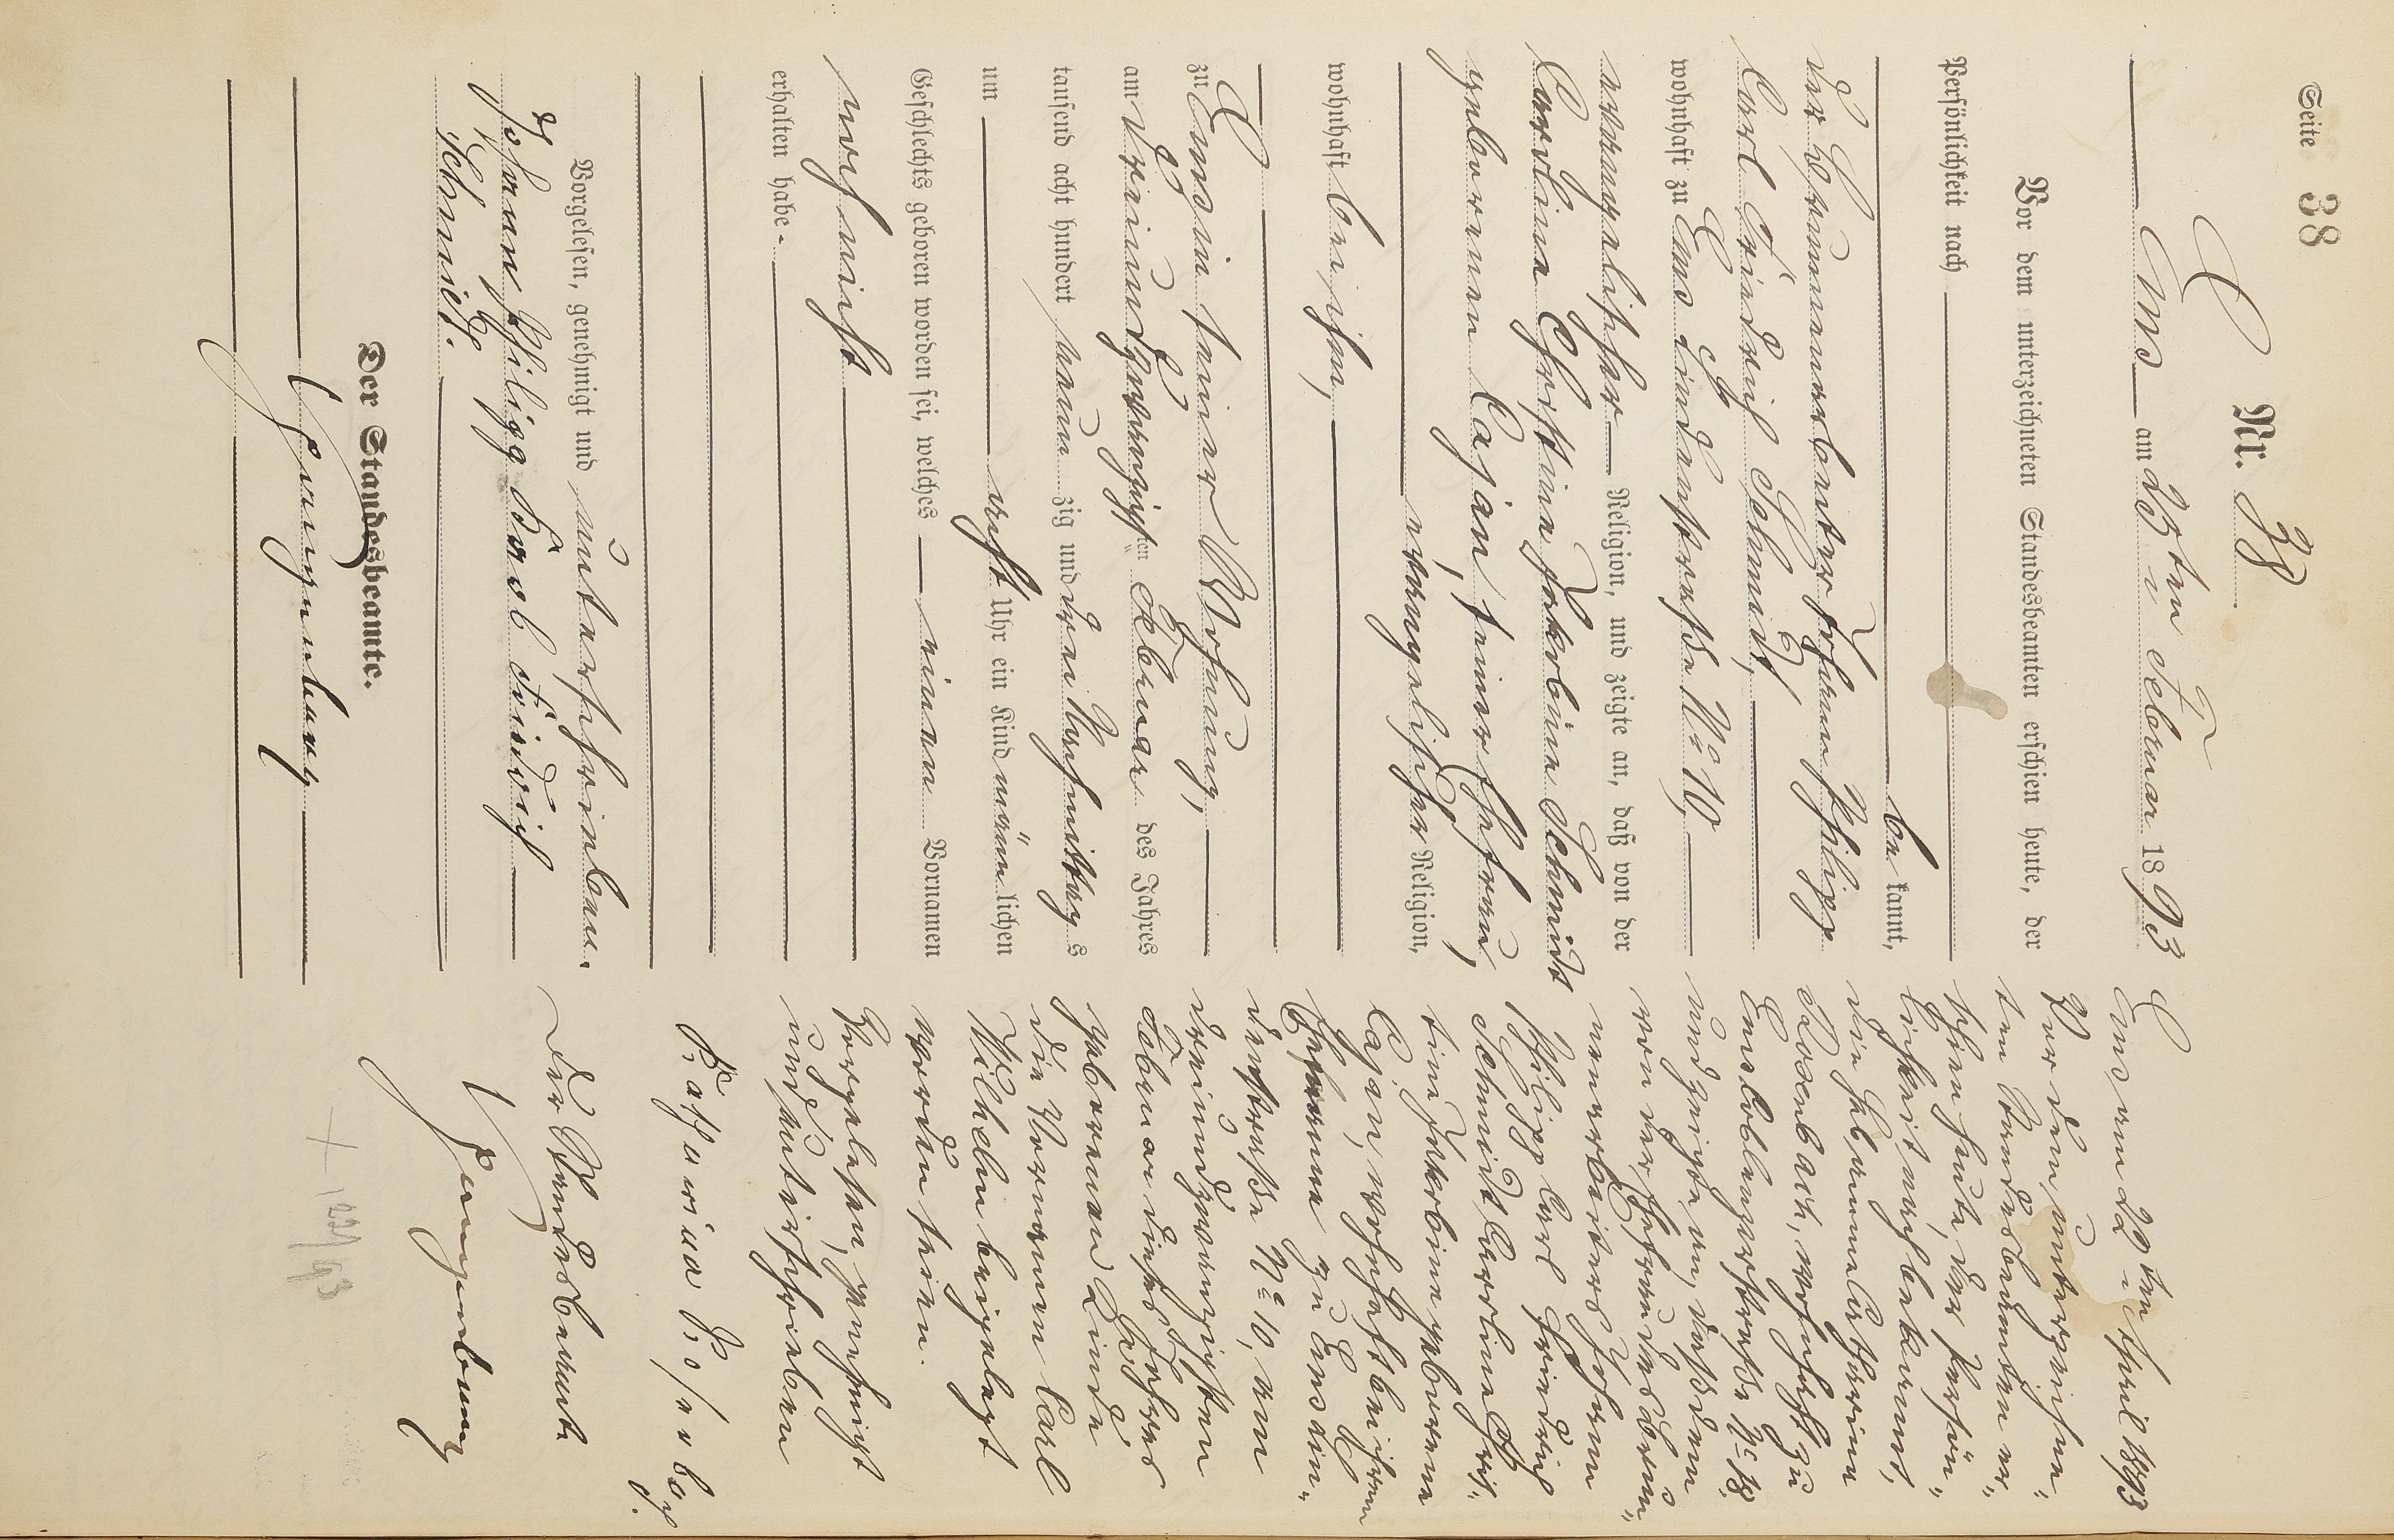 Seite 38
Nr. 38
Ems am 23ten Februar 1893
Vor dem unterzeichneten Standesbeamten erschien heute, der
Persönlichkeit nach
be kannt,
der Brunnenarbeiter Johann Philipp
Carl Friedrich Schmidt,
wohnhaft zu Ems Lindenstraße No 10,
evangelischer Religion, und zeigte an, daß von der
Caroline Christine Jakobine Schmidt
geborenen Cajan, seiner Ehefrau,
evangelischer Religion,
wohnhaft bei ihm,
zu Ems in seiner Wohnung,
am dreiundzwanzigsten Februar des Jahres
tausend acht hundert neun zig und drei Nachmittags
um acht Uhr ein Kind männ lichen
Geschlechts geboren worden sei, welches einen Vornamen
noch nicht
erhalten habe.
Vorgelesen, genehmigt und unterschrieben.
Johann Philipp Karl Friedrich
Schmidt.
Der Standesbeamte.
Spangenberg
Ems am 22ten April 1893
Vor dem unterzeichne-
ten Standesbeamten er-
schien heute, der Persön-
lichkeit nach bekannt,
die Hebamme Catharina
wohnhaft zu
Ems No 18
und zeigte an, daß dem
von der Ehefrau des Brun-
nenarbeiters Johann
Philipp Carl Friedrich
Schmidt Caroline Chris-
tine Jakobine geborene
Cajan, wohnhaft bei ihrem
Ehemanne zu Ems Lin-
denstraße No 10, am
dreiundzwanzigsten
Februar dieses Jahres
geborenen Kinde
die Vornamen Carl
Wilhelm beigelegt
worden seien.
Vorgelesen, genehmigt
und unterschrieben
Der Standesbeamte
Spangenberg